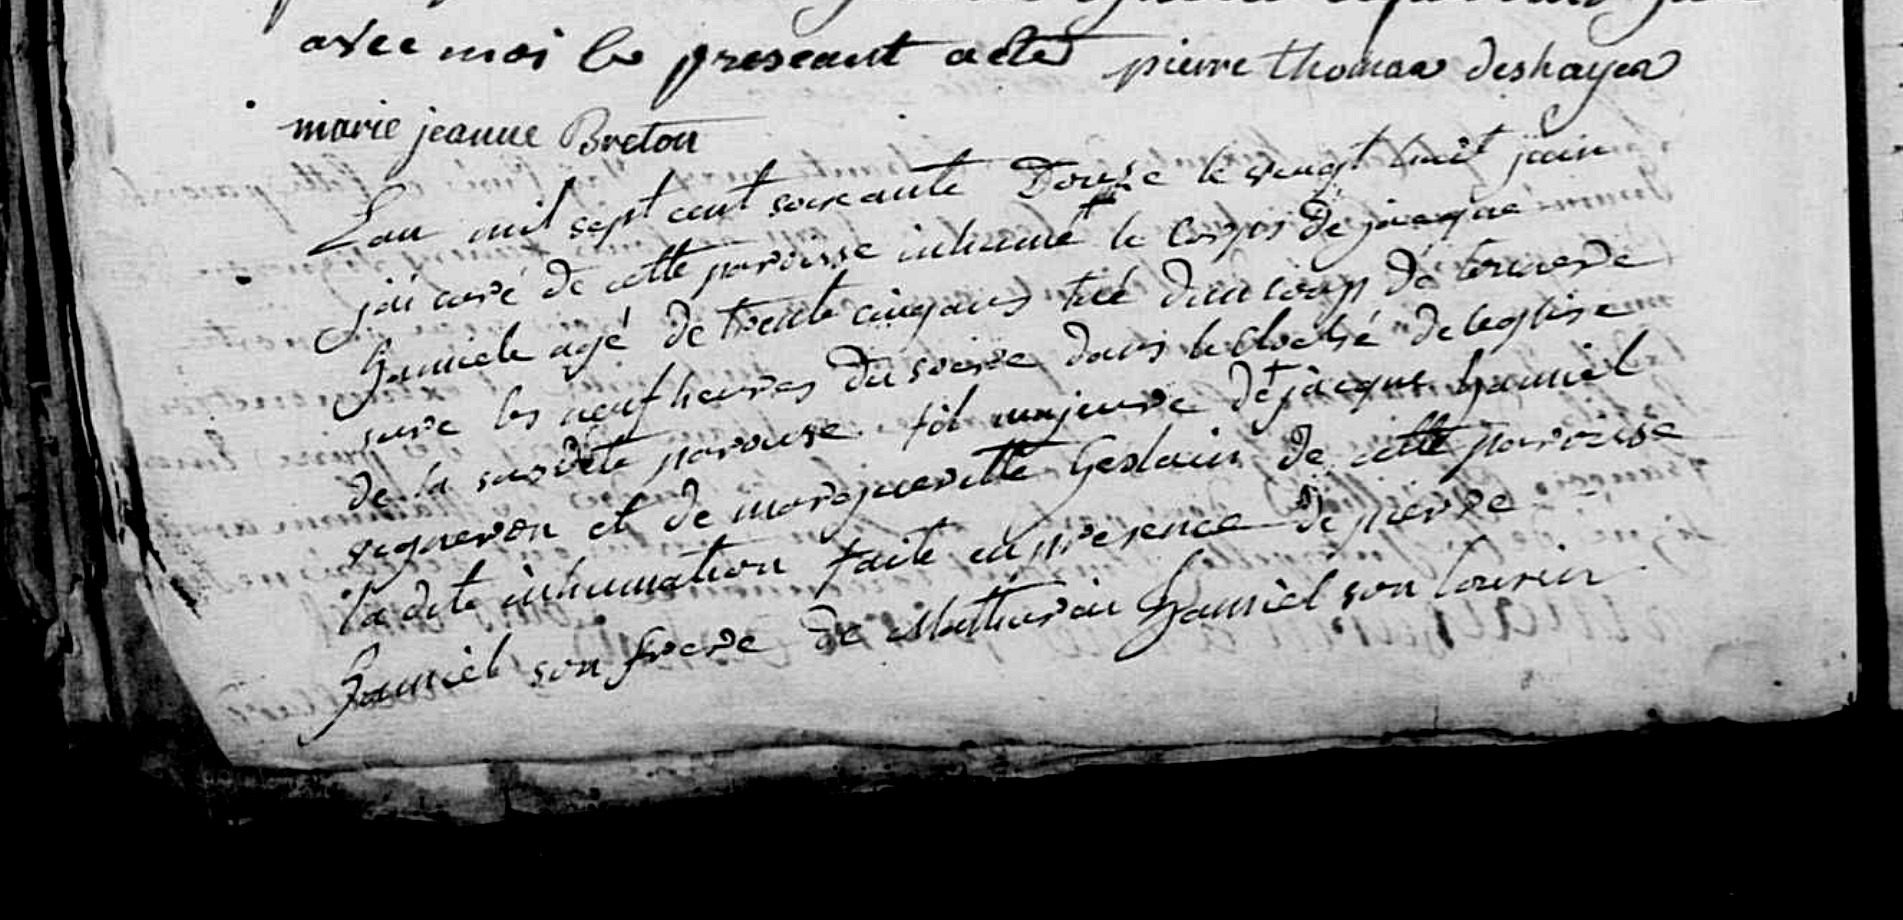 avec moi le preseant acte pierre thomas deshayes
marie jeanne Breton
L'an mil sept cent soixante Douse le vingt huit juin
j'ai curé de cette paroisse inhumé le corps de jacque
hamiele agé de trente cinq ans tué d'un coup de tonnere
sure les neuf heures du soire dans le cloché de leglise
de la susdite paroisse fil majeure de jacque hamiel
vigneron et de margueritte Geslain de cette paroisse
la dite inhumation faite en presence de pierre
hamiel son frere de Mathurin hamiel son cousin